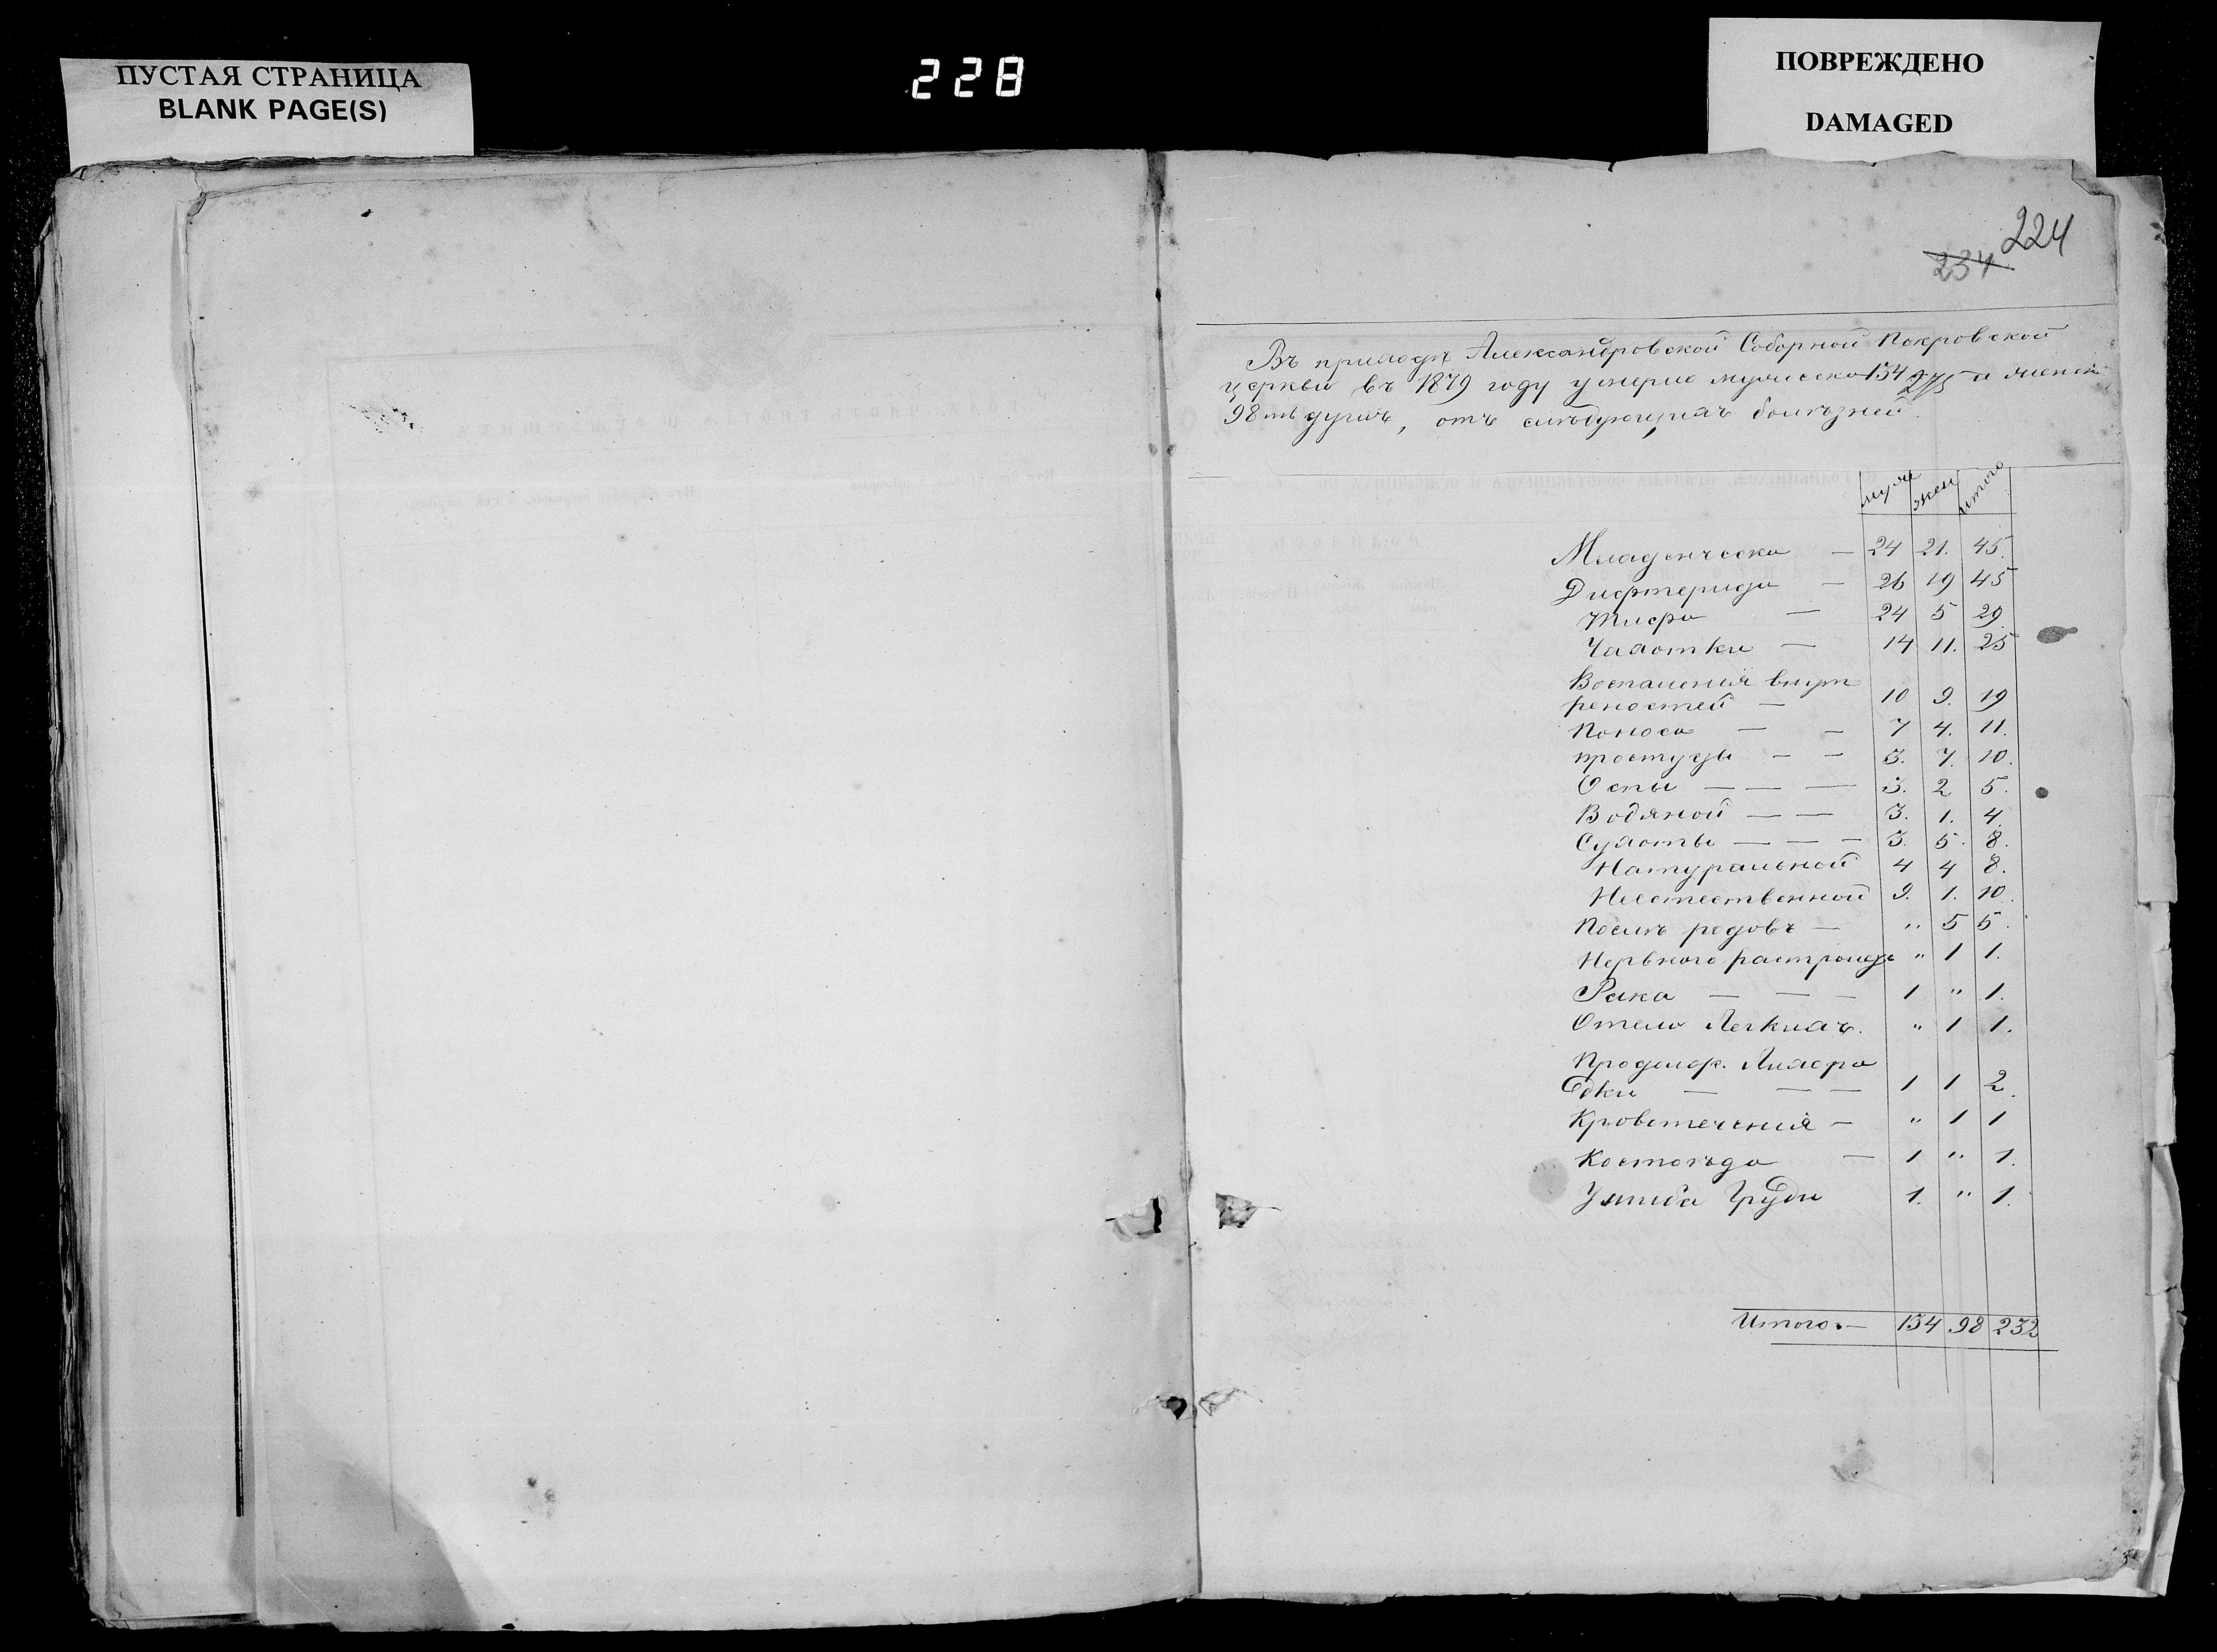 ПУСТАЯ СТРАНИЦА
BLANK PAGE(S)
228
ПОВРЕЖДЕНО
DAMAGED
224
234
Въ приходѣ Александровской Соборной Покровской
церкви въ 1879 году умерло мужеска 134 и женска
98мь душъ, отъ слѣдующихъ болѣзней
муж жен итого
Младенческа — 24 21. 45.
Дифтерида — 26 19 45
Тифа — 24 5 29.
Чахотки — 14 11. 25
Воспаления внут
реностей — 10 9. 19
Поноса — — 7 4. 11.
простуды — — 3. 7. 10.
Оспы — — — 3. 2 5.
Водяной — — 3. 1. 4.
Сухоты — — — 3. 5. 8.
Натуральной 4 4 8.
Неестественной 9. 1. 10.
Послѣ родовъ — " 5 5.
Нервного растройс " 1 1.
Рака — — — 1 " 1.
Отекъ Легкихъ. " 1 1.
Лихора
дки — — — 1 1 2.
Кровотечения — " 1 1
Костоѣда — 1 " 1.
Ушиба Груди 1. " 1.
Итого — 134 98 232